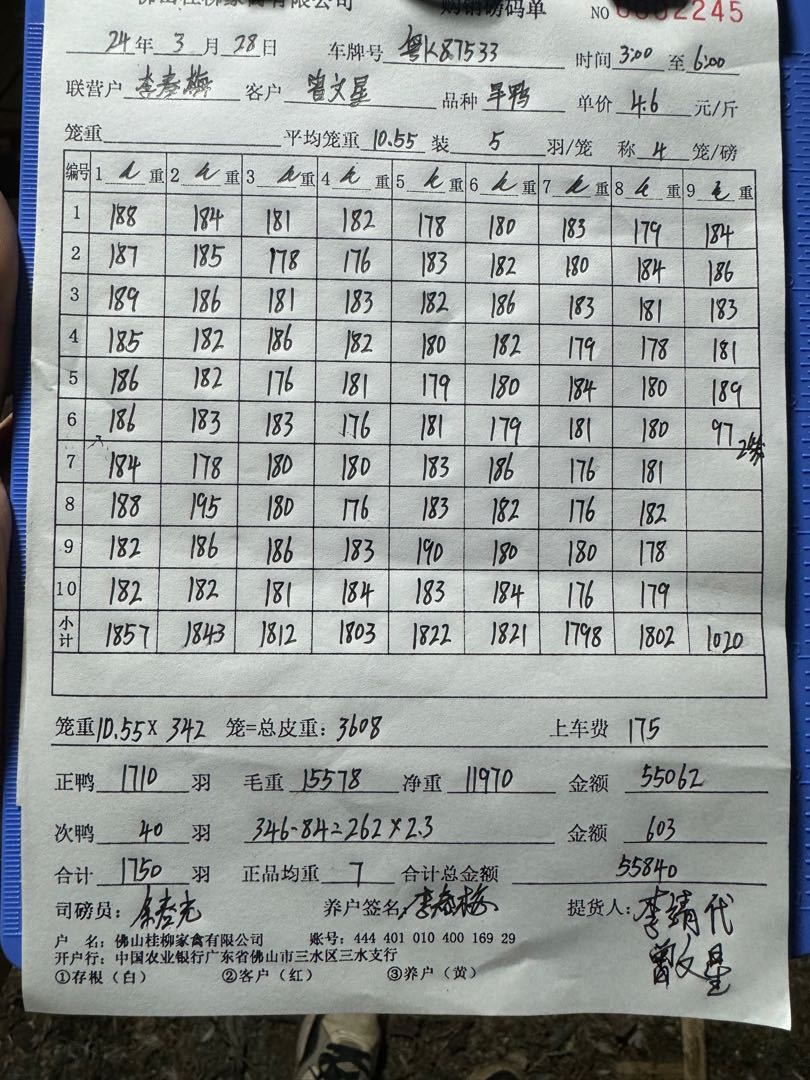 佛山桂柳家禽有限公司 购销磅码单 NO 0002245
24年 3月 28日 车牌号 粤K87533 时间 3:00 至 6:00
联营户 李春梅 客户 曾文星 品种 旱鸭 单价 4.6 元/斤
笼重 平均笼重 10.55 装 5 羽/笼 称 4 笼/磅
编号 1 重 2 重 3 重 4 重 5 重 6 重 7 重 8 重 9 重
1 188 184 181 182 178 180 183 179 184
2 187 185 178 176 183 182 180 184 186
3 189 186 181 183 182 186 183 181 183
4 185 182 186 182 180 182 179 178 181
5 186 182 176 181 179 180 184 180 189
6 186 183 183 176 181 179 181 180 97
7 184 178 180 180 183 186 176 181
8 188 195 180 176 183 182 176 182
9 182 186 186 183 190 180 180 178
10 182 182 181 184 183 184 176 179
小计 1857 1843 1812 1803 1822 1821 1798 1802 1020
笼重10.55X 342 笼=总皮重: 3608 上车费 175
正鸭 1710 羽 毛重 15578 净重 11970 金额 55062
次鸭 40 羽 346-84=262×2.3 金额 603
合计 1750 羽 正品均重 7 合计总金额 55840
司磅员: 养户签名: 李春梅 提货人: 李靖代
曾文星
户 名: 佛山桂柳家禽有限公司 账号: 444 401 010 400 169 29
开户行: 中国农业银行广东省佛山市三水区三水支行
①存根(白) ②客户(红) ③养户(黄)